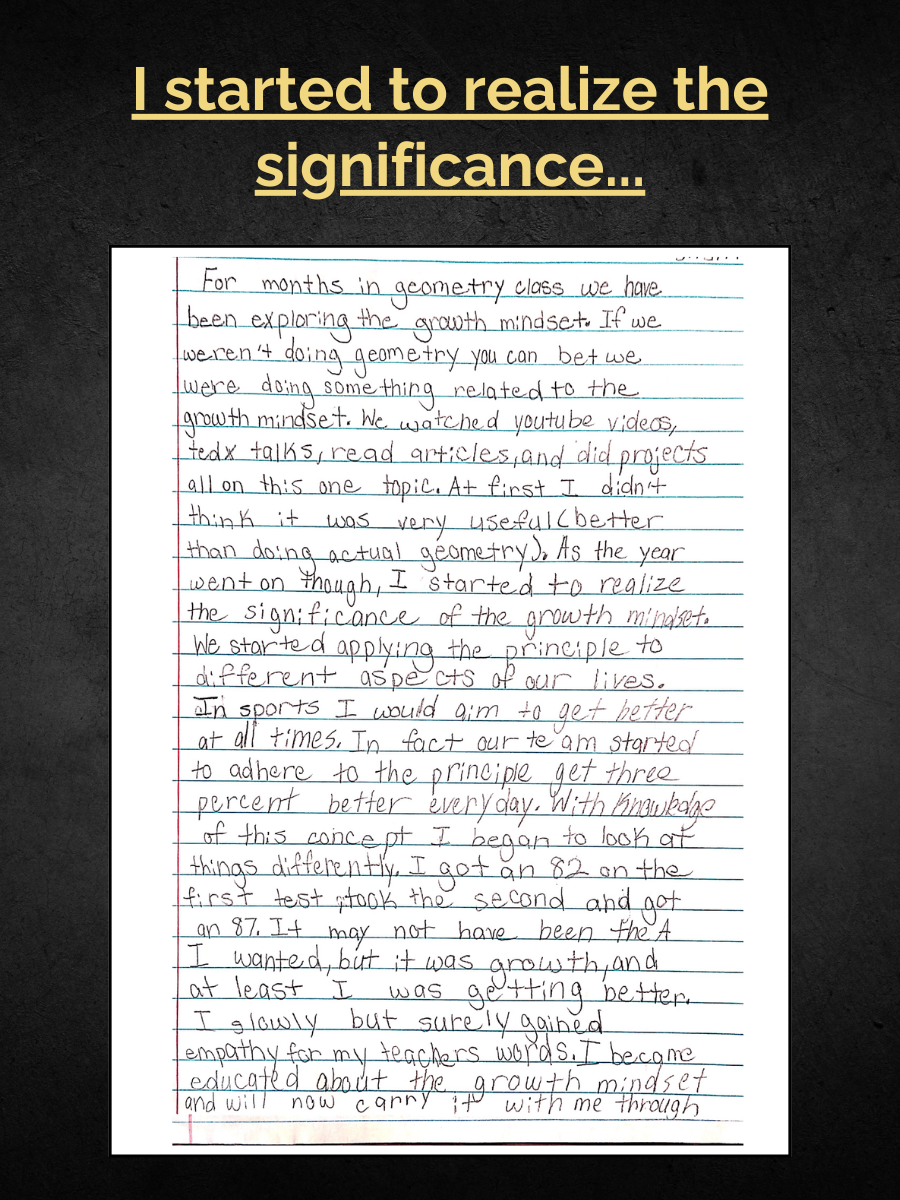 I started to realize the
significance...
For months in geometry class we have
been exploring the growth mindset. If we
weren't doing geometry you can bet we
were doing something related to the
growth mindset. We watched youtube videos,
tedx talks, read articles, and did projects
all on this one topic. At first I didn't
think it was very useful (better
than doing actual geometry). As the year
went on though, I started to realize
the significance of the growth mindset.
We started applying the principle to
different aspects of our lives.
In sports I would aim to get better
at all times. In fact our team started
to adhere to the principle get three
percent better everyday. With knowledge
of this concept I began to look at
things differently. I got an 82 on the
first test ; took the second and got
an 87. It may not have been the A
I wanted, but it was growth, and
at least I was getting better.
I slowly but surely gained
empathy for my teachers words. I became
educated about the growth mindset
and will now carry it with me through